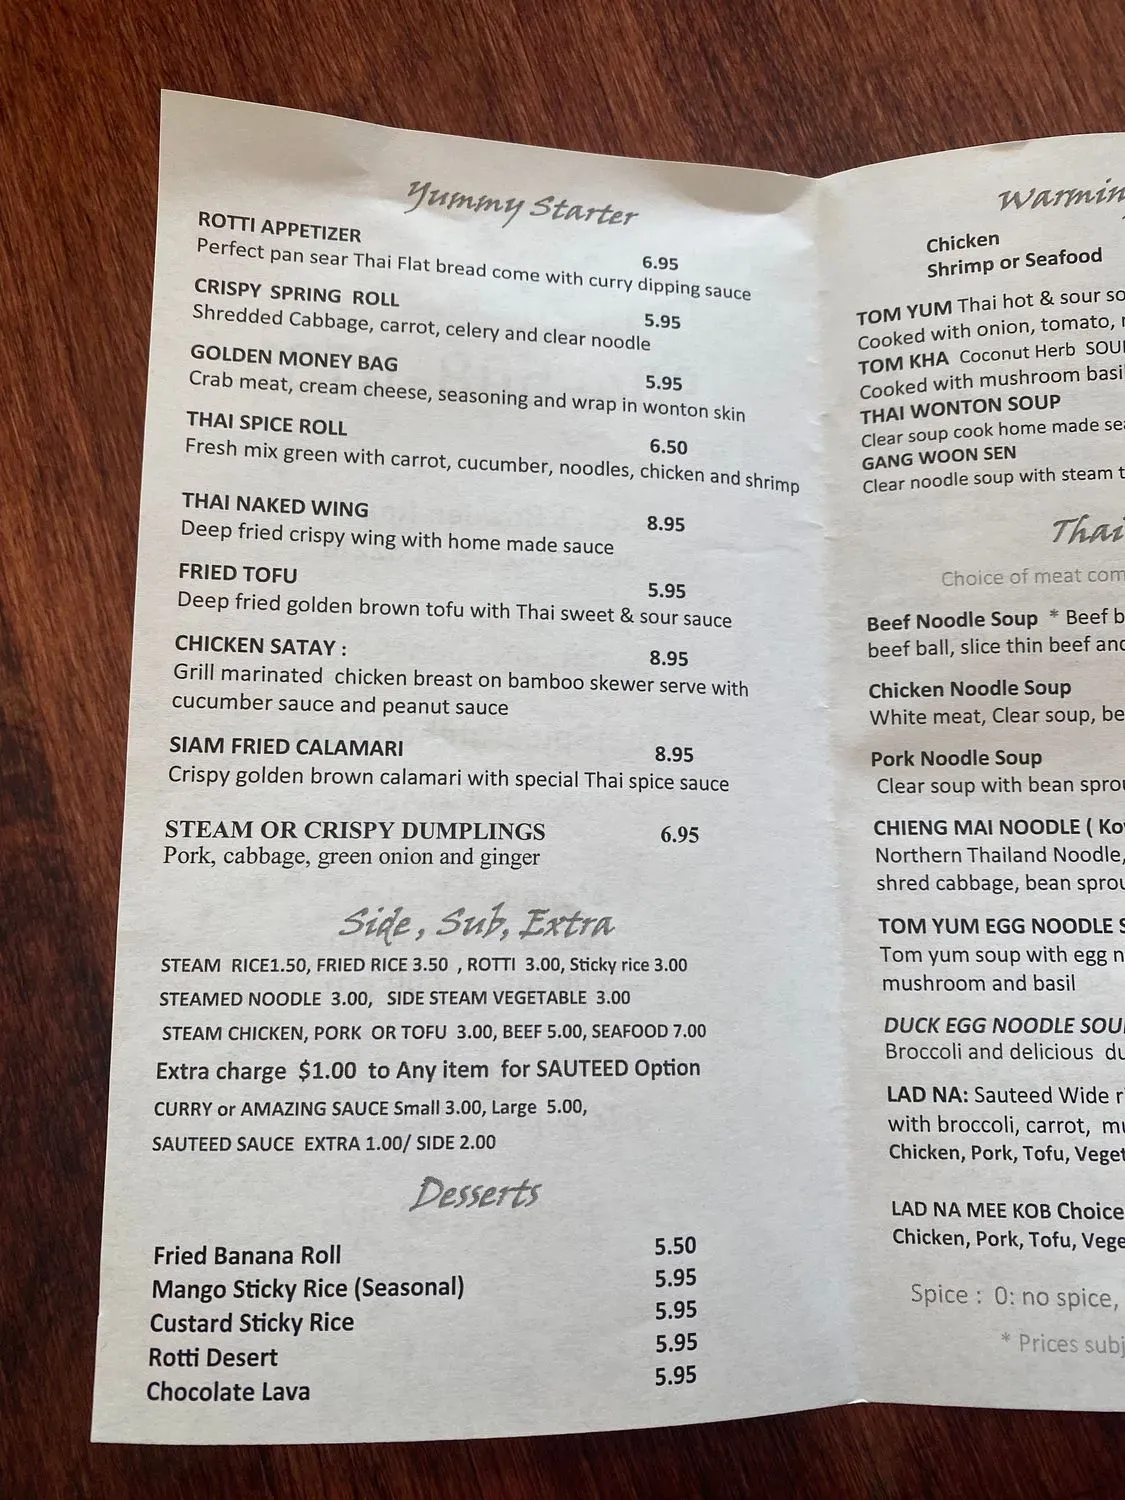 Yummy Starter
ROTTI APPETIZER 6.95
Perfect pan sear Thai Flat bread come with curry dipping sauce
CRISPY SPRING ROLL 5.95
Shredded Cabbage, carrot, celery and clear noodle
GOLDEN MONEY BAG 5.95
Crab meat, cream cheese, seasoning and wrap in wonton skin
THAI SPICE ROLL 6.50
Fresh mix green with carrot, cucumber, noodles, chicken and shrimp
THAI NAKED WING 8.95
Deep fried crispy wing with home made sauce
FRIED TOFU 5.95
Deep fried golden brown tofu with Thai sweet & sour sauce
CHICKEN SATAY : 8.95
Grill marinated chicken breast on bamboo skewer serve with
cucumber sauce and peanut sauce
SIAM FRIED CALAMARI 8.95
Crispy golden brown calamari with special Thai spice sauce
STEAM OR CRISPY DUMPLINGS 6.95
Pork, cabbage, green onion and ginger
Side, Sub, Extra
STEAM RICE1.50, FRIED RICE 3.50 , ROTTI 3.00, Sticky rice 3.00
STEAMED NOODLE 3.00, SIDE STEAM VEGETABLE 3.00
STEAM CHICKEN, PORK OR TOFU 3.00, BEEF 5.00, SEAFOOD 7.00
Extra charge $1.00 to Any item for SAUTEED Option
CURRY or AMAZING SAUCE Small 3.00, Large 5.00,
SAUTEED SAUCE EXTRA 1.00/ SIDE 2.00
Desserts
Fried Banana Roll 5.50
Mango Sticky Rice (Seasonal) 5.95
Custard Sticky Rice 5.95
Rotti Desert 5.95
Chocolate Lava 5.95
Warmin
Chicken
Shrimp or Seafood
TOM YUM Thai hot & sour so
Cooked with onion, tomato,
TOM KHA Coconut Herb SOU
Cooked with mushroom basi
THAI WONTON SOUP
Clear soup cook home made se
GANG WOON SEN
Clear noodle soup with steam t
Thai
Choice of meat com
Beef Noodle Soup * Beef b
beef ball, slice thin beef and
Chicken Noodle Soup
White meat, Clear soup, be
Pork Noodle Soup
Clear soup with bean sprou
CHIENG MAI NOODLE ( Ko
Northern Thailand Noodle,
shred cabbage, bean sprou
TOM YUM EGG NOODLE S
Tom yum soup with egg n
mushroom and basil
DUCK EGG NOODLE SOU
Broccoli and delicious du
LAD NA: Sauteed Wide r
with broccoli, carrot, mu
Chicken, Pork, Tofu, Veget
LAD NA MEE KOB Choice
Chicken, Pork, Tofu, Vege
Spice : 0: no spice,
* Prices subj